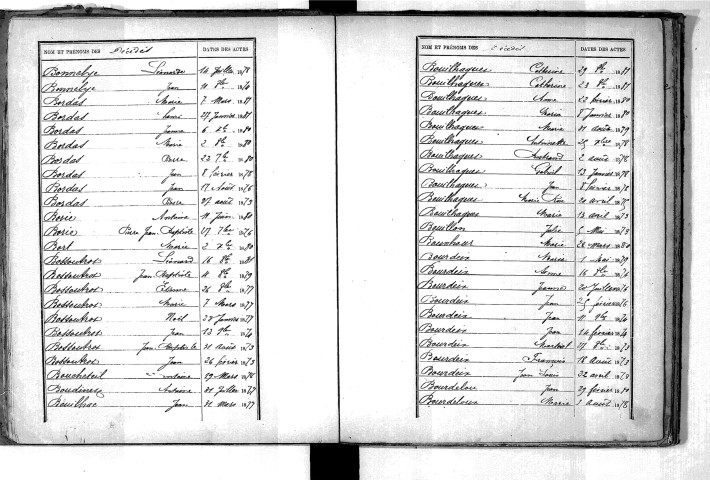 NOM ET PRÉNOMS DES Décédés DATES DES ACTES
Bonnelye Léonarde 14 Juillet 1878
Bonnelye Jean 11 8bre
Bordas Marie 7 Mars 1881
Bordas Louis 27 Janvier 1881
Bordas Jeanne 6 xbre 1880
Bordas Marie 2 8bre 1880
Bordas Pierre 23 7bre 1880
Bordas Jean 8 février 1878
Bordas Jean 17 Août 1876
Bordas Pierre 27 août 1873
Borie Antoine 11 Juin 1880
Borie Pierre Jean Baptiste 27 7bre 1876
Bort Marie 2 xbre 1880
Bossoutrot Léonard 16 8bre 1881
Bossoutrot Jean Baptiste 11 8bre 1879
Bossoutrot Etienne 26 8bre 1877
Bossoutrot Marie 7 Mars 1877
Bossoutrot Noël 22 Janvier 1877
Bossoutrot Jean 13 9bre 1874
Bossoutrot Jean Baptiste 31 août 1873
Bossoutrot Jean 26 février 1873
Boucheteil Antoine 29 Mars 1878
Antoine 31 Juillet 1877
Bouilhac Jean 31 Mars 1877
NOM ET PRÉNOMS DES Décédés DATES DES ACTES
Bouilhagues Catherine 29 8bre 1881
Bouilhagues Catherine 23 8bre 1881
Bouilhagues Anne 22 février 1880
Bouilhagues Maria 8 Janvier 1880
Bouilhagues Marie 11 août 1879
Bouilhagues Antoinette xbre 1878
Bouilhagues 2 août 1878
Bouilhagues Gabriel 13 Janvier 1878
Bouilhagues Jean 8 février 1878
Bouilhagues 20 avril 1875
Bouilhagues Marie 13 avril 1873
Bouillon Julie 5 Mai 1873
Marie 26 Mars 1880
Bourdeix Marie 1 Mai 1879
Bourdeix Anne 16 8bre 1876
Bourdeix Jeanne 20 Juillet 1876
Bourdeix Jean 25 février 1876
Bourdeix Jean 11 9bre 1874
Bourdeix Jean 24 février 1874
Bourdeix Martial 27 8bre 1873
Bourdeix François 18 Août 1873
Bourdeix Jean Louis 22 avril 1873
Bourdelou Jean 29 février 1880
Bourdeloux Marie 3 août 1878